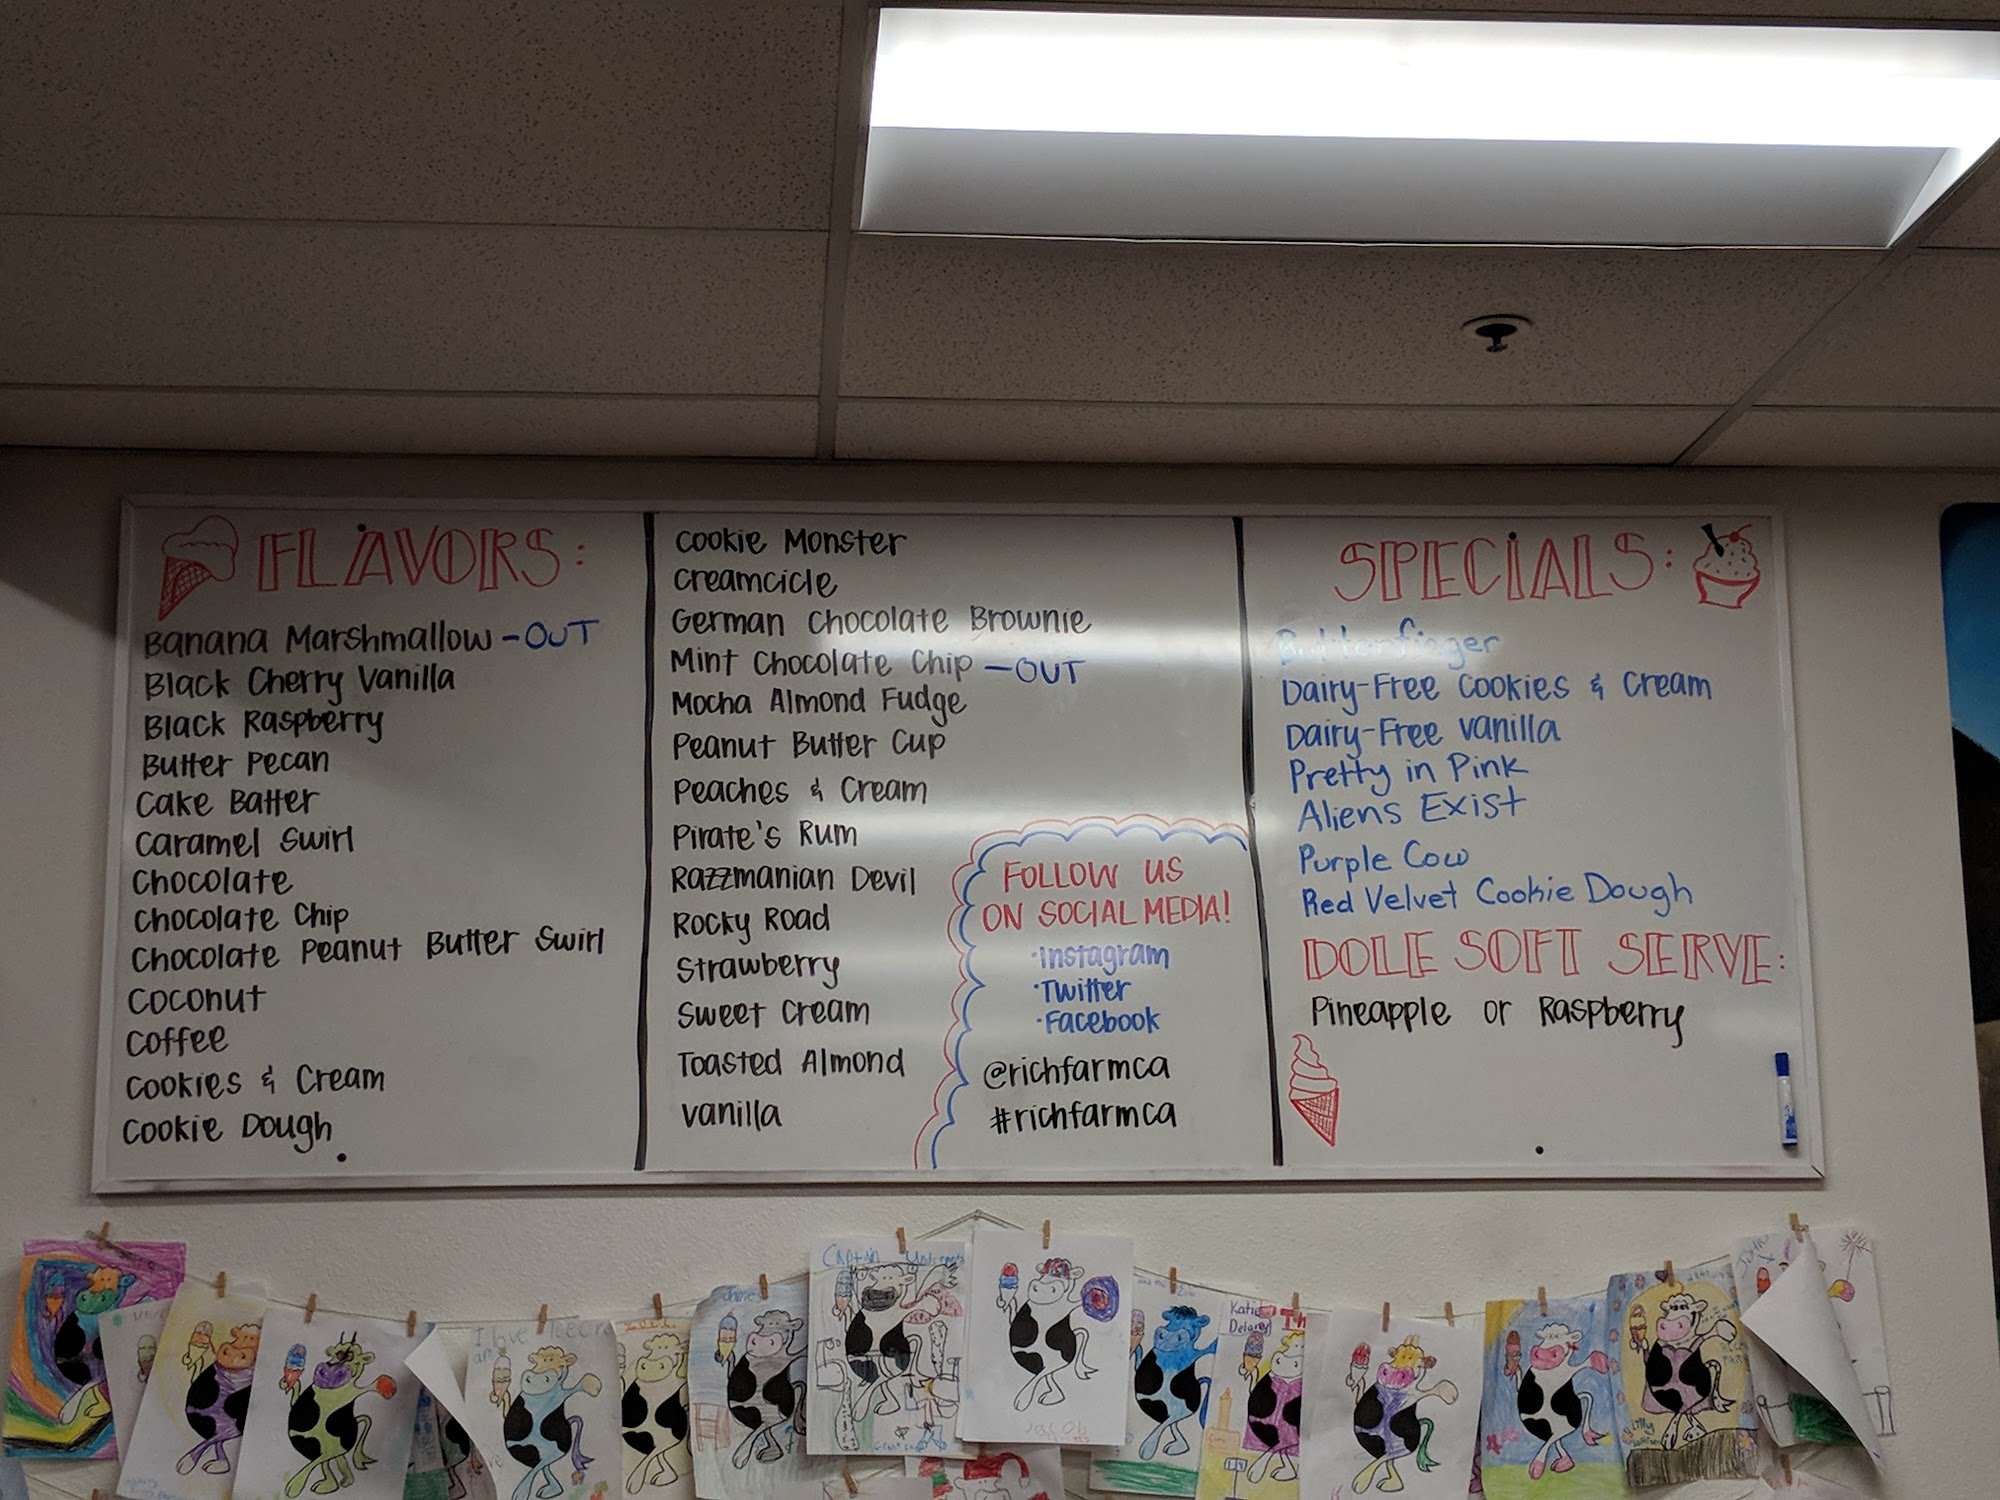 FLAVORS:
Banana Marshmallow - OUT
Black Cherry Vanilla
Black Raspberry
Butter Pecan
Cake Batter
Caramel Swirl
Chocolate
Chocolate Chip
Chocolate Peanut Butter Swirl
Coconut
Coffee
Cookies & Cream
Cookie Dough
Cookie Monster
Creamcicle
German Chocolate Brownie
Mint Chocolate Chip - OUT
Mocha Almond Fudge
Peanut Butter Cup
Peaches & Cream
Pirate's Rum
Razzmanian Devil
Rocky Road
Strawberry
Sweet Cream
Toasted Almond
Vanilla
FOLLOW US
ON SOCIAL MEDIA!
·Instagram
·Twitter
·Facebook
@richfarmca
#richfarmca
SPECIALS:
Butterfinger
Dairy-Free Cookies & Cream
Dairy-Free Vanilla
Pretty in Pink
Aliens Exist
Purple Cow
Red Velvet Cookie Dough
DOLE SOFT SERVE:
Pineapple or Raspberry
Captain
I love Icecre
Katie
Delaney
Th
Jacob
Lilly